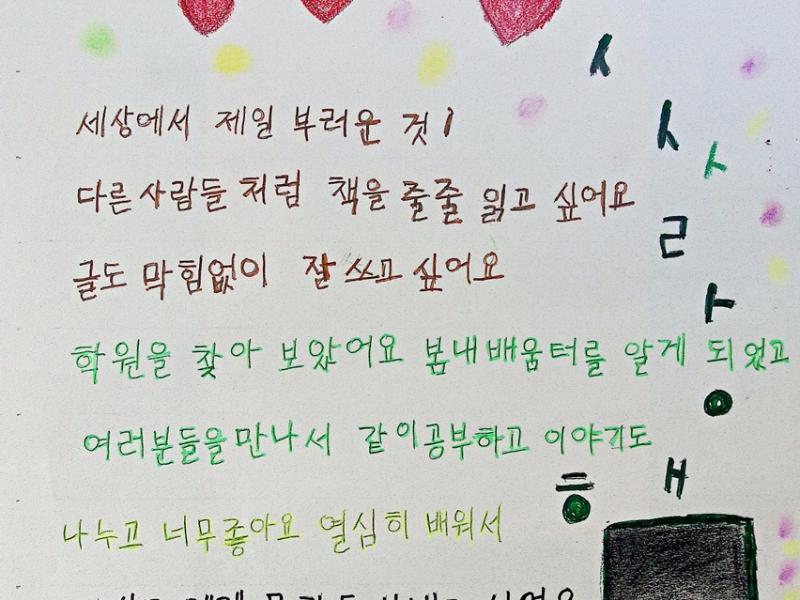 세상에서 제일 부러운 것!
다른사람들 처럼 책을 줄줄 읽고 싶어요
글도 막힘없이 잘 쓰고 싶어요
학원을 찾아 보았어요 봄내배움터를 알게 되었고
여러분들을만나서 같이공부하고 이야기도
나누고 너무좋아요 열심히 배워서